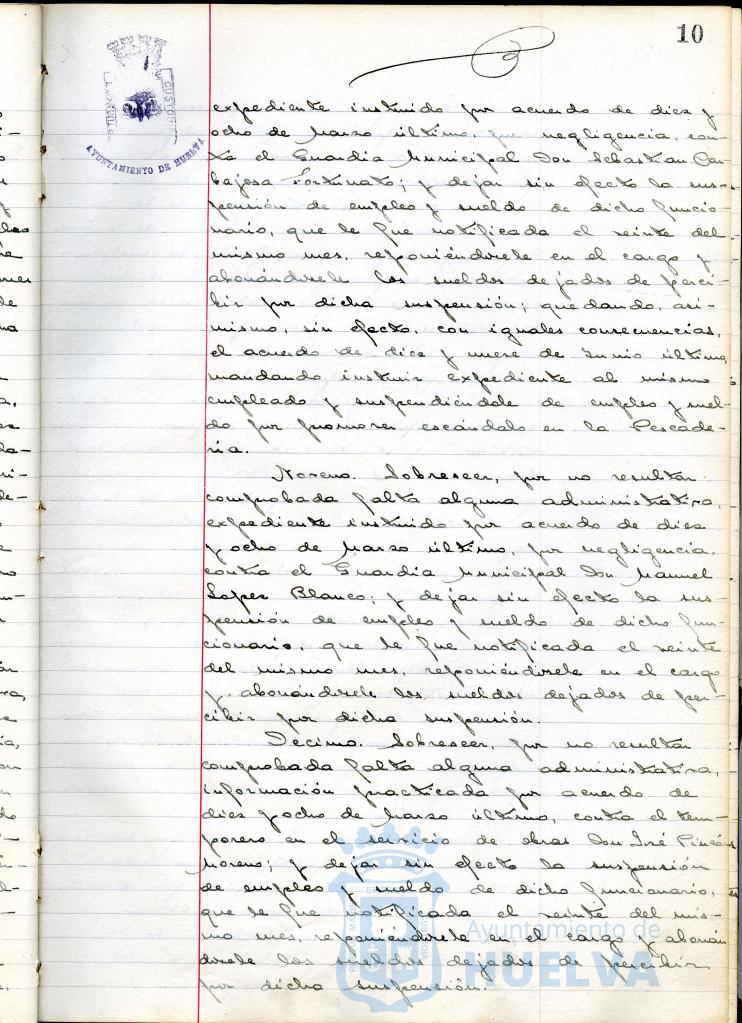 10
AYUNTAMIENTO DE HUELVA
expediente instruido por acuerdo de diez y
ocho de Marzo último, por negligencia, con-
tra el Guardia Municipal Don Sebastian Car-
bajosa Fortunato; y dejar sin efecto la sus-
pensión de empleo y sueldo de dicho funcio-
nario, que le fue notificada el veinte del
mismo mes, reponiéndosele en el cargo y
abonándosele los sueldos dejados de perci-
bir por dicha suspensión; quedando, asi-
mismo, sin efecto, con iguales consecuencias,
el acuerdo de diez y nueve de Junio último,
mandando instruir expediente al mismo
empleado y suspendiéndole de empleo y suel-
do por promover escándalo en la Pescade-
ria.
Noveno. Sobreseer, por no resultar
comprobada falta alguna administrativa,
expediente instruido por acuerdo de diez
y ocho de Marzo último, por negligencia,
contra el Guardia Municipal Don Manuel
Lopez Blanco; y dejar sin efecto la sus-
pensión de empleo y sueldo de dicho fun-
cionario, que le fue notificada el veinte
del mismo mes, reponiéndosele en el cargo
y abonándosele los sueldos dejados de per-
cibir por dicha suspensión.
Decimo. Sobreseer, por no resultar
comprobada falta alguna administrativa,
información practicada por acuerdo de
diez y ocho de Marzo último, contra el tem-
porero en el servicio de obras Don José
Moreno; y dejar sin efecto la suspensión
de empleo y sueldo de dicho funcionario,
que le fue notificada el veinte del mis-
mo mes, reponiéndosele en el cargo y abonán
dosele los sueldos dejados de percibir
por dicha suspensión.
Ayuntamiento de
HUELVA